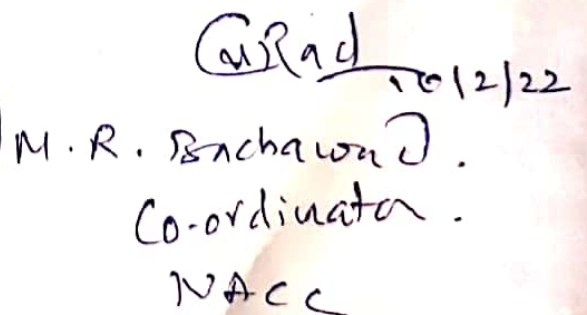 10/2/22
M. R. Bachawad.
Co-ordinator.
NACC